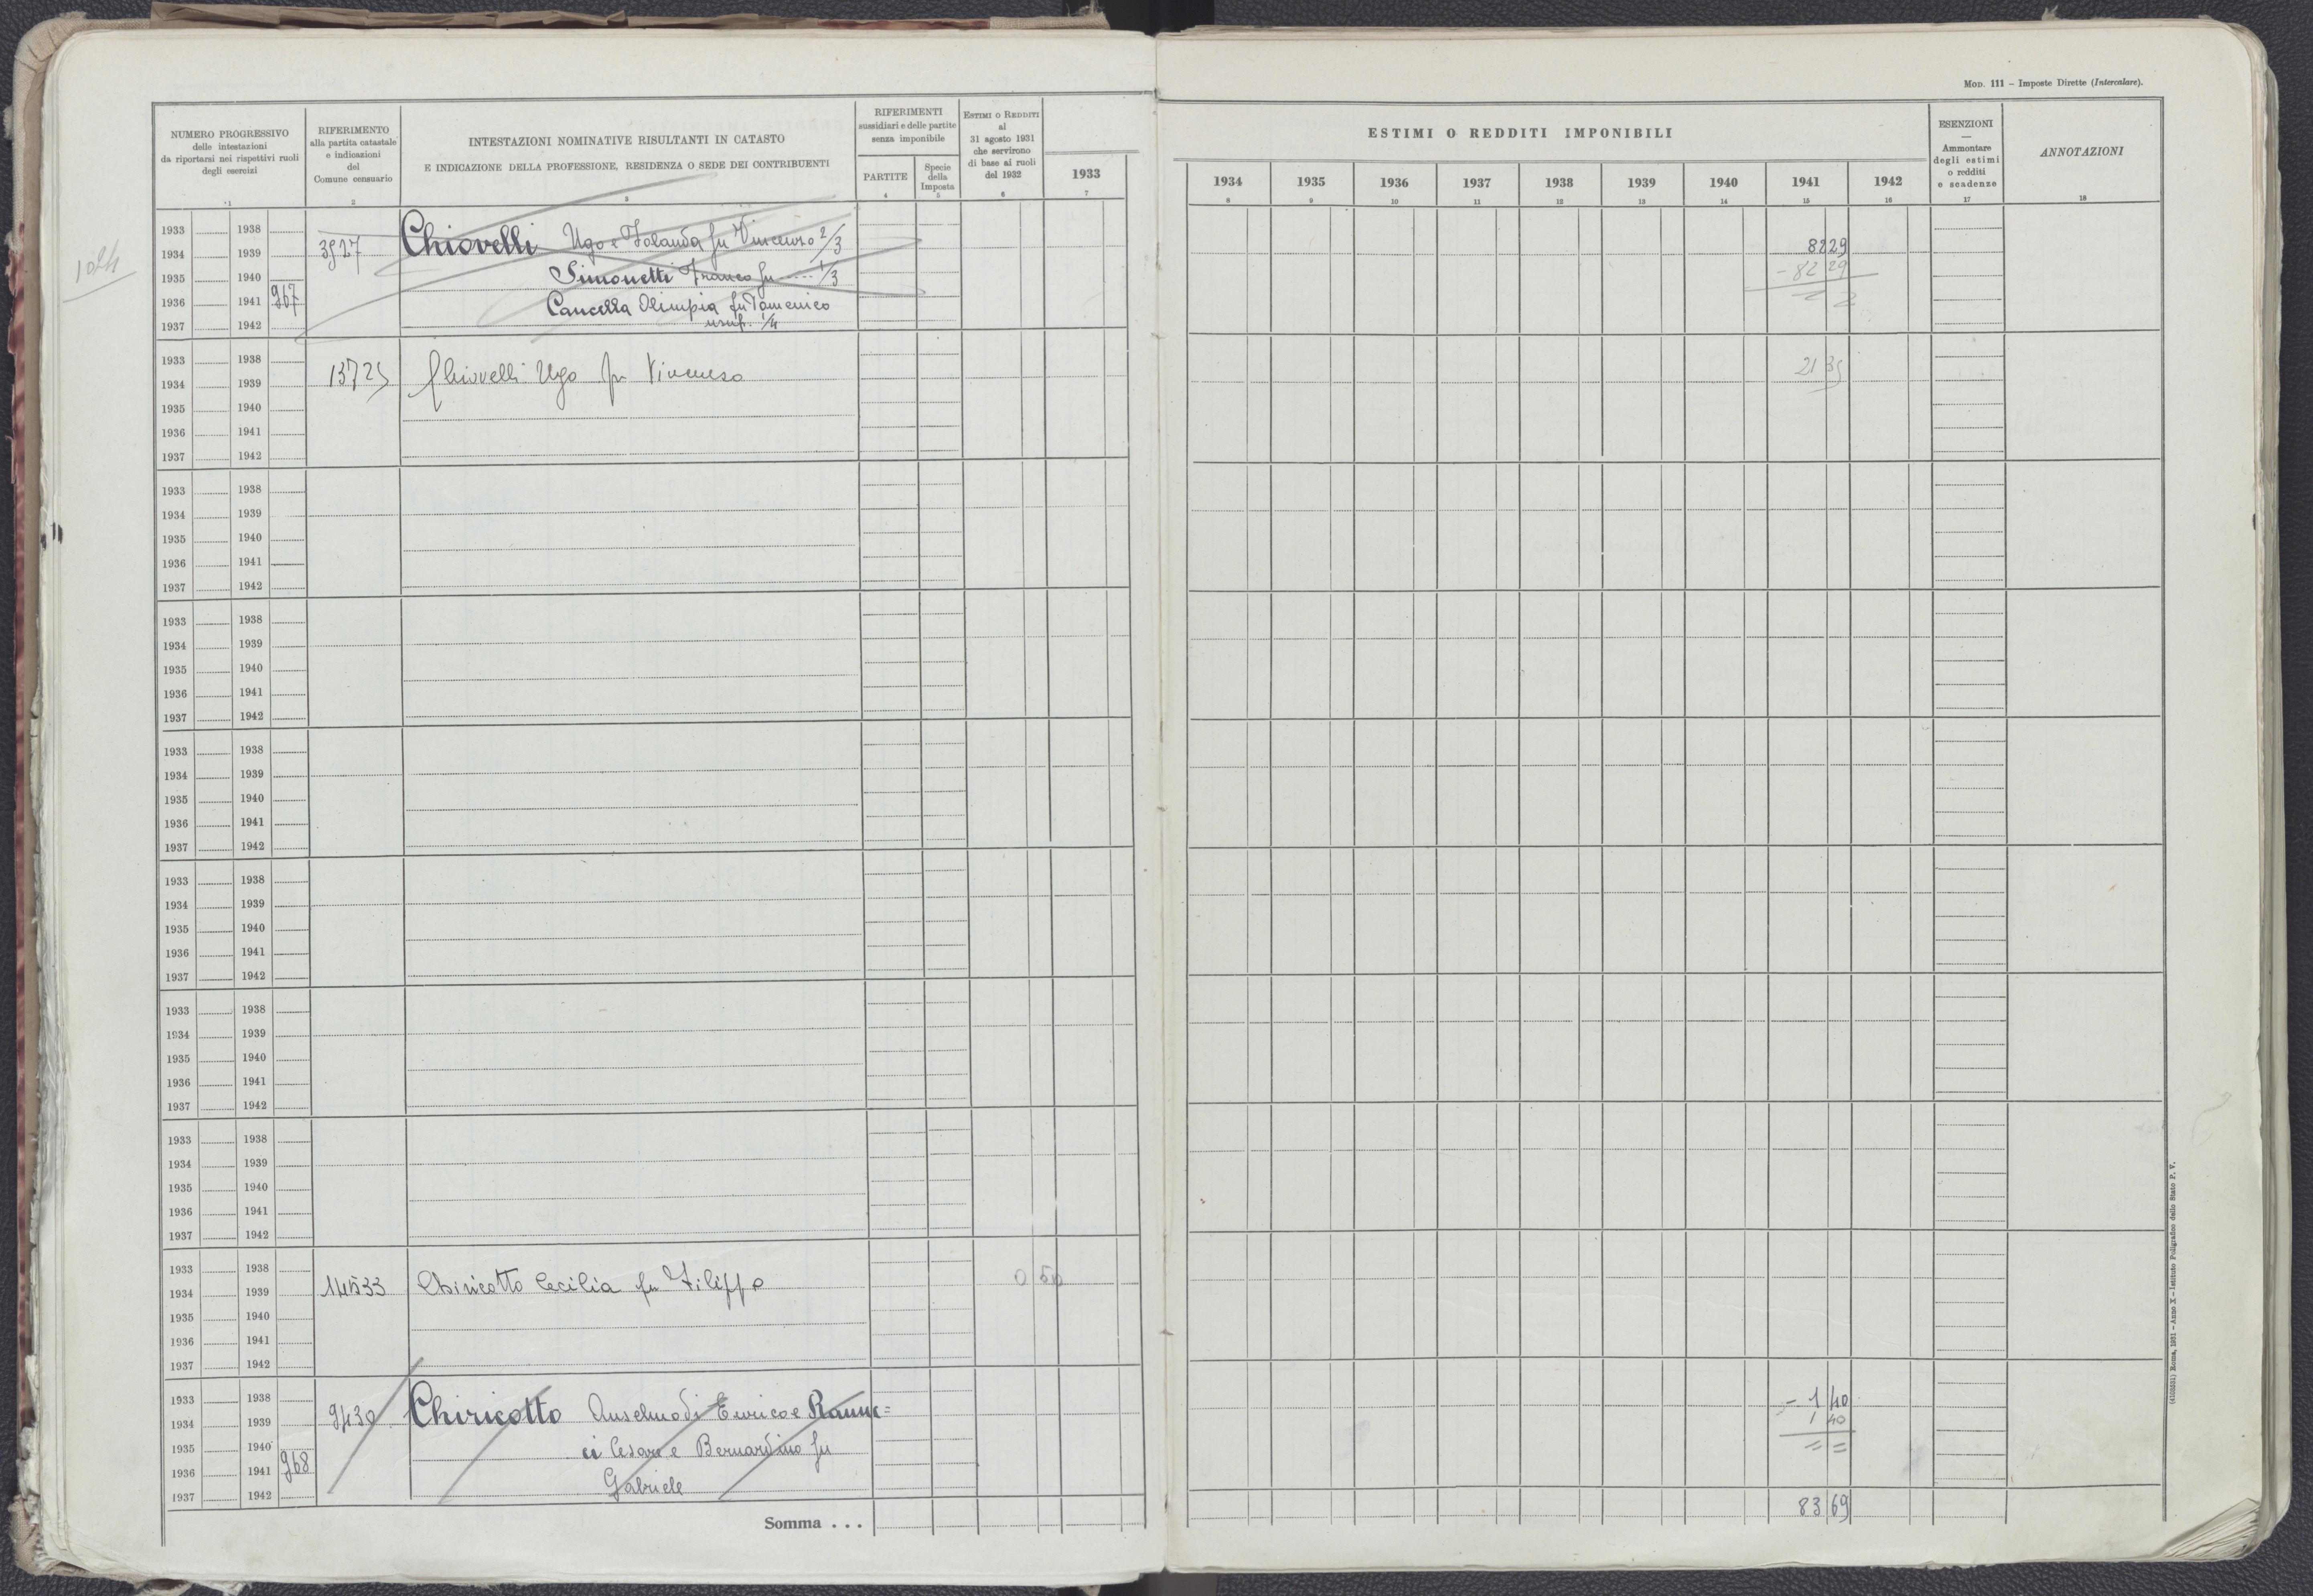 MOD. 111 – Imposte Dirette (Intercalare).
NUMERO PROGRESSIVO
delle intestazioni
da riportarsi nei rispettivi ruoli
degli esercizi
1
RIFERIMENTO
alla partita catastale
e indicazioni
del
Comune censuario
2
INTESTAZIONI NOMINATIVE RISULTANTI IN CATASTO
E INDICAZIONE DELLA PROFESSIONE, RESIDENZA O SEDE DEI CONTRIBUENTI
3
RIFERIMENTI
sussidiari e delle partite
senza imponibile
PARTITE
4
Specie
della
Imposta
5
ESTIMI O REDDITI
al
31 agosto 1931
che servirono
di base ai ruoli
del 1932
6
1933
7
ESTIMI O REDDITI IMPONIBILI
1934 1935 1936 1937 1938 1939 1940 1941 1942
8 9 10 11 12 13 14 15 16
ESENZIONI
—
Ammontare
degli estimi
o redditi
e scadenze
17
ANNOTAZIONI
18
1024
1933 1938
1934 1939 3927 Chiovelli Ugo e Iolanda fu Vincenzo 2/3 82 29
1935 1940 Simonetti Franco fu ---- 1/3 – 82 29
1936 1941 967 Cancella Olimpia fu Domenico = =
1937 1942 usuf. 1/4
1933 1938
1934 1939 13725 Chiovelli Ugo fu Vincenzo 21 35
1935 1940
1936 1941
1937 1942
1933 1938
1934 1939
1935 1940
1936 1941
1937 1942
1933 1938
1934 1939
1935 1940
1936 1941
1937 1942
1933 1938
1934 1939
1935 1940
1936 1941
1937 1942
1933 1938
1934 1939
1935 1940
1936 1941
1937 1942
1933 1938
1934 1939
1935 1940
1936 1941
1937 1942
1933 1938
1934 1939
1935 1940
1936 1941
1937 1942
1933 1938
1934 1939 14533 Chiricotto Cecilia fu Filippo 0 50
1935 1940
1936 1941
1937 1942
1933 1938
1934 1939 9430 Chiricotto Anselmo di Enrico e Ranuc= – 1 40
1935 1940 ci Cesare e Bernardino fu 1 40
1936 1941 968 Gabriele = =
1937 1942
Somma . . . 83 69
(4103531) Roma, 1931 – Anno X – Istituto Poligrafico dello Stato P. V.